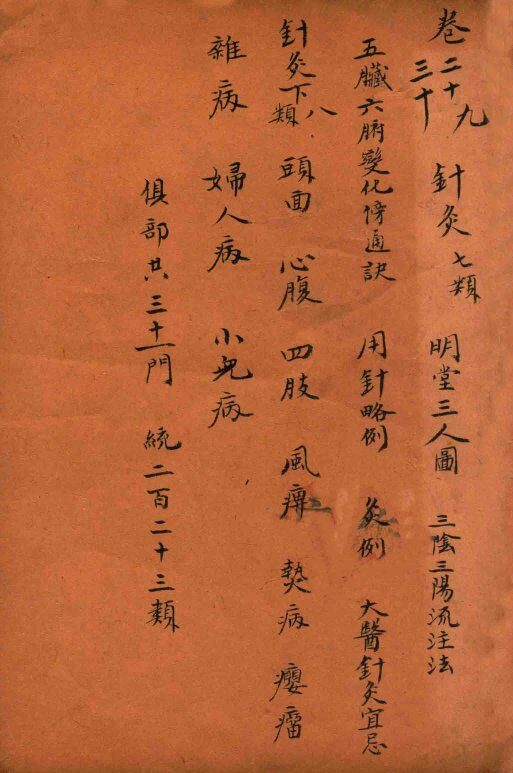 卷二十九 針灸七類 明堂三人圖 三陰三陽流注法
五臟六腑變化傍通訣 用針略例 灸例 大醫針灸宜忌
三十 針灸下八類 頭面 心腹 四肢 風痹 熱病 癭瘤
雜病 婦人病 小兒病
俱部共三十一門 統二百二十三類